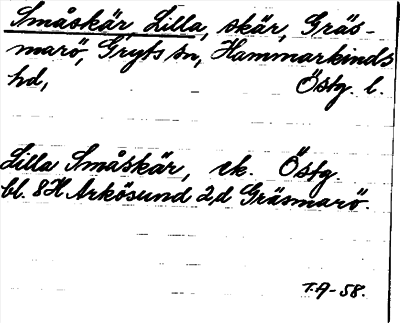 Småskär, Lilla, skär, Gräs-
marö, Gryts sn, Hammarkinds
hd, Östg. l.
Lilla Småskär, ek. Östg.
bl. 8H Arkösund 2,d Gräsmarö.
T.A-58.